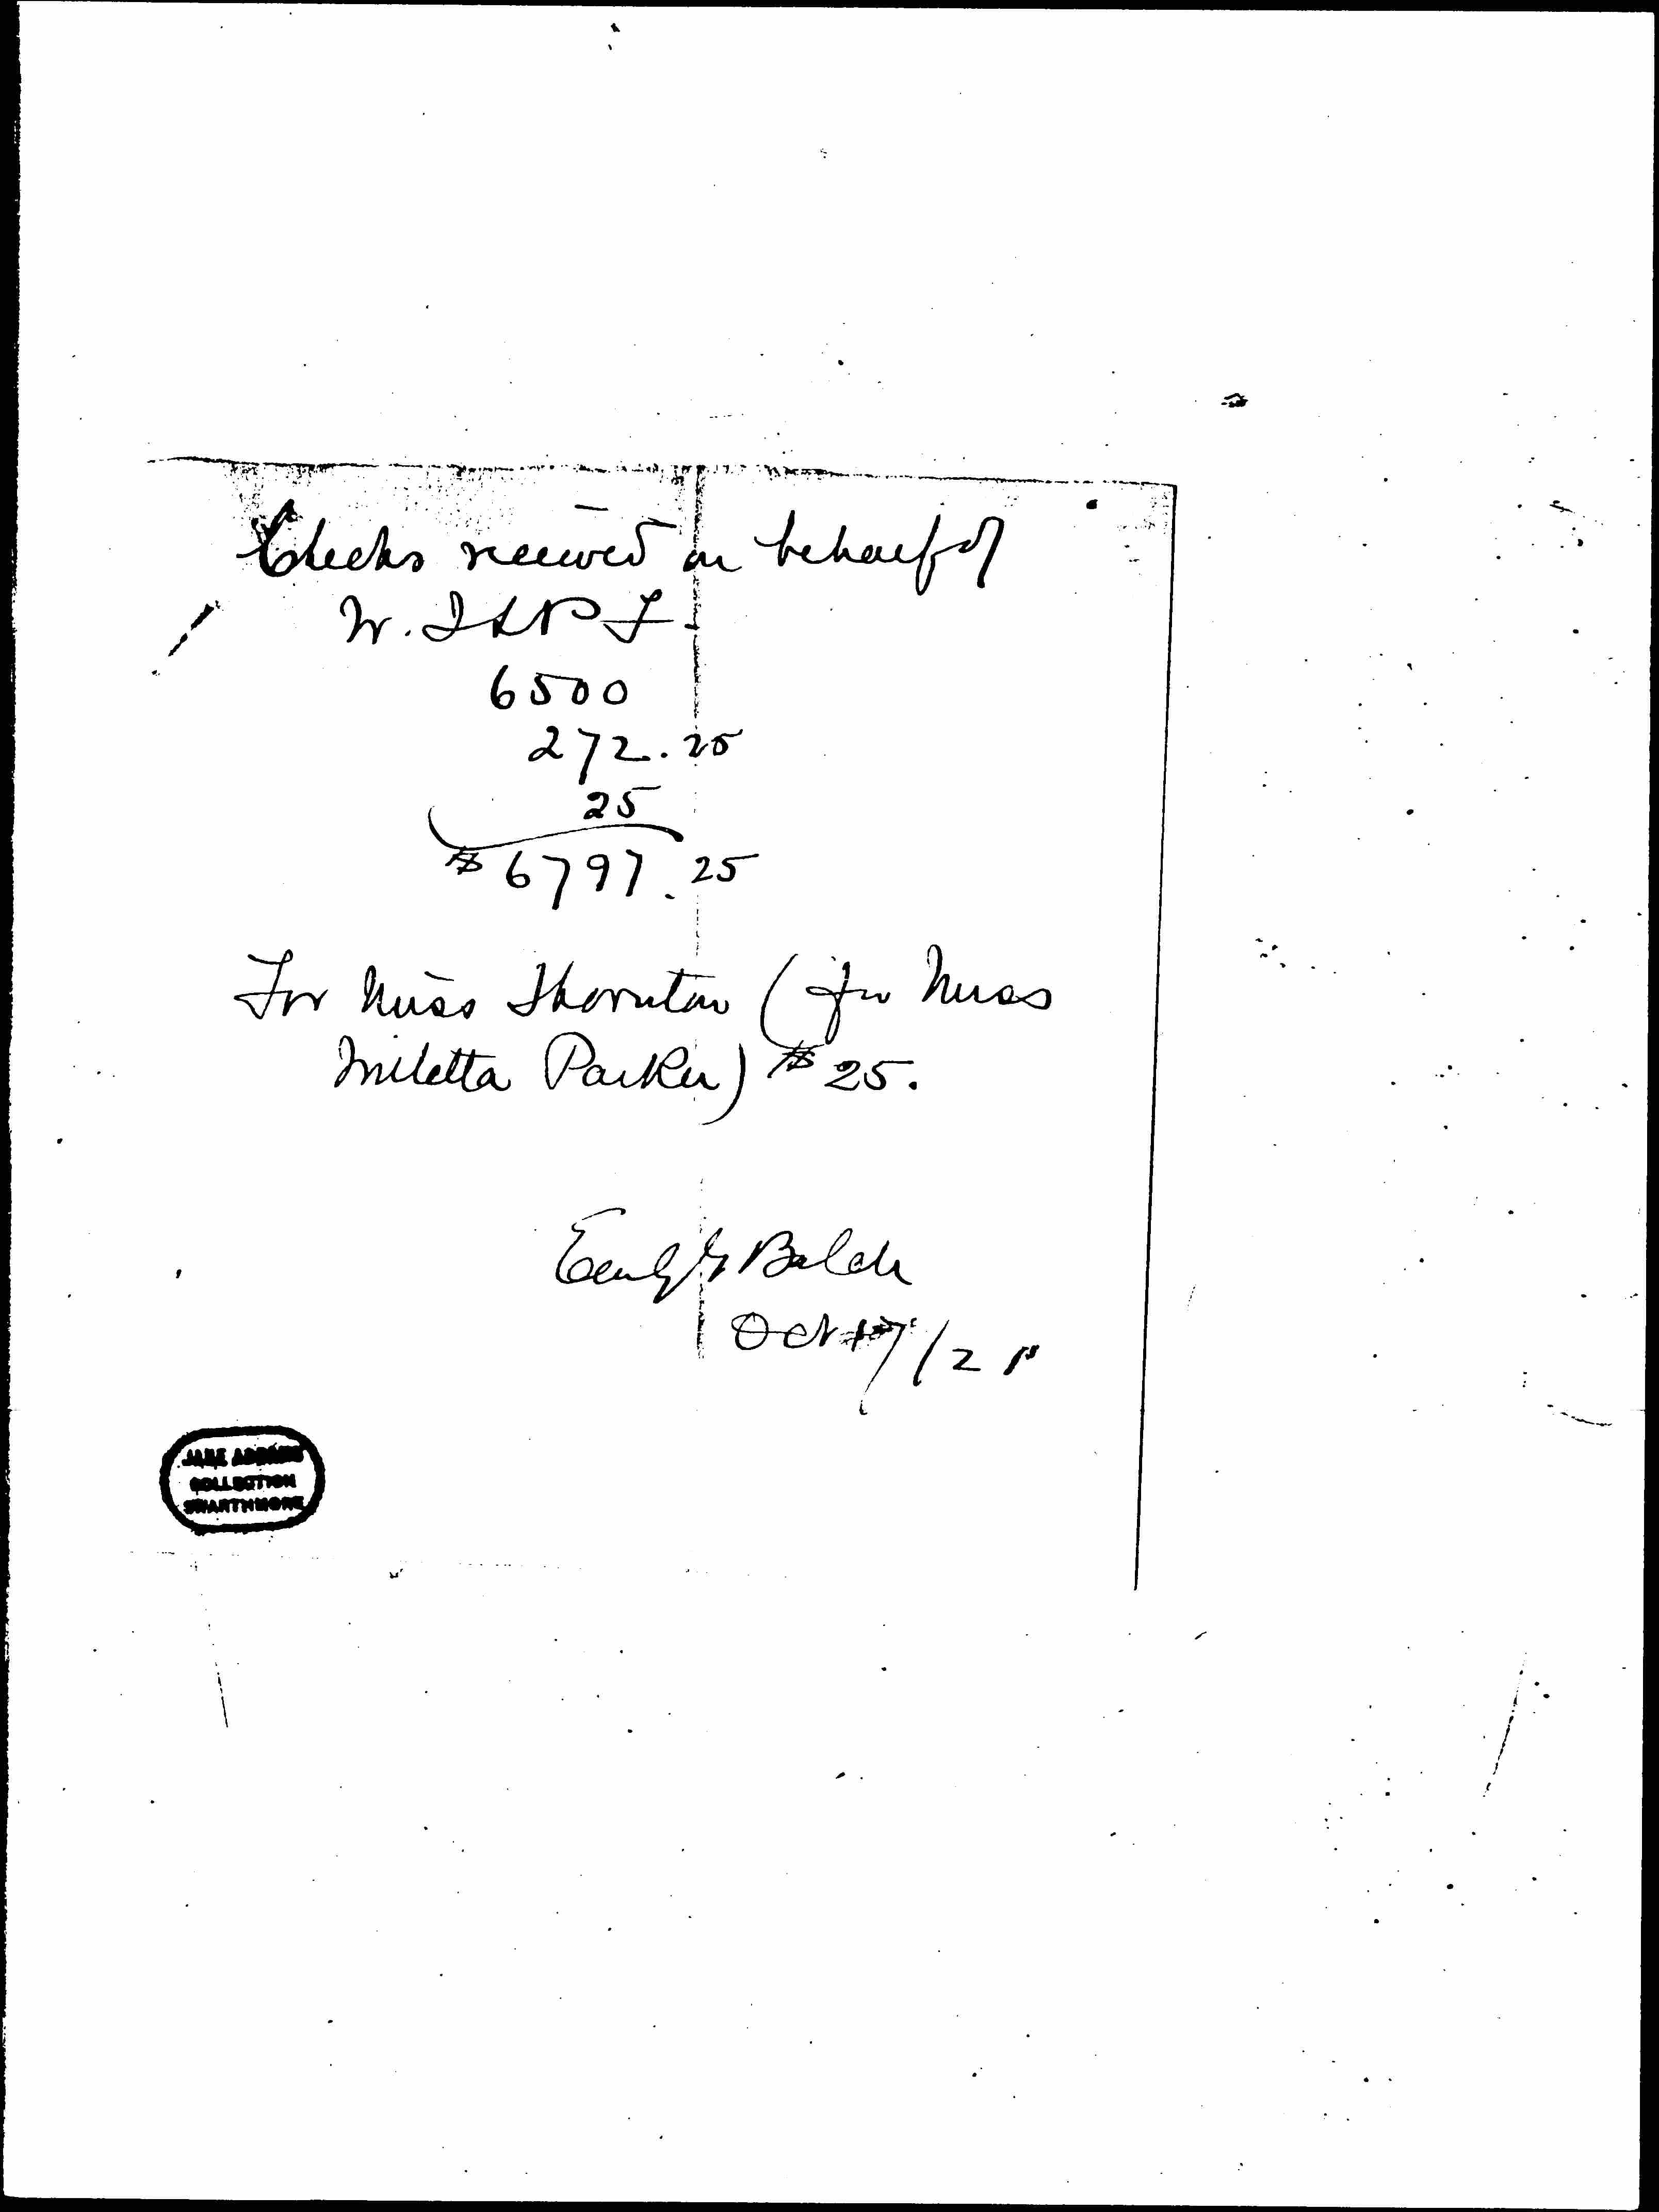 Checks received on behalf of
W.I L P F
6500
272.25
25
$ 6797.25
For Miss Thornton (for Miss
Miletta Parker) $ 25.
Emily G Balch
Oct 7/21
JANE ADDAMS
COLLECTION
SWARTHMORE